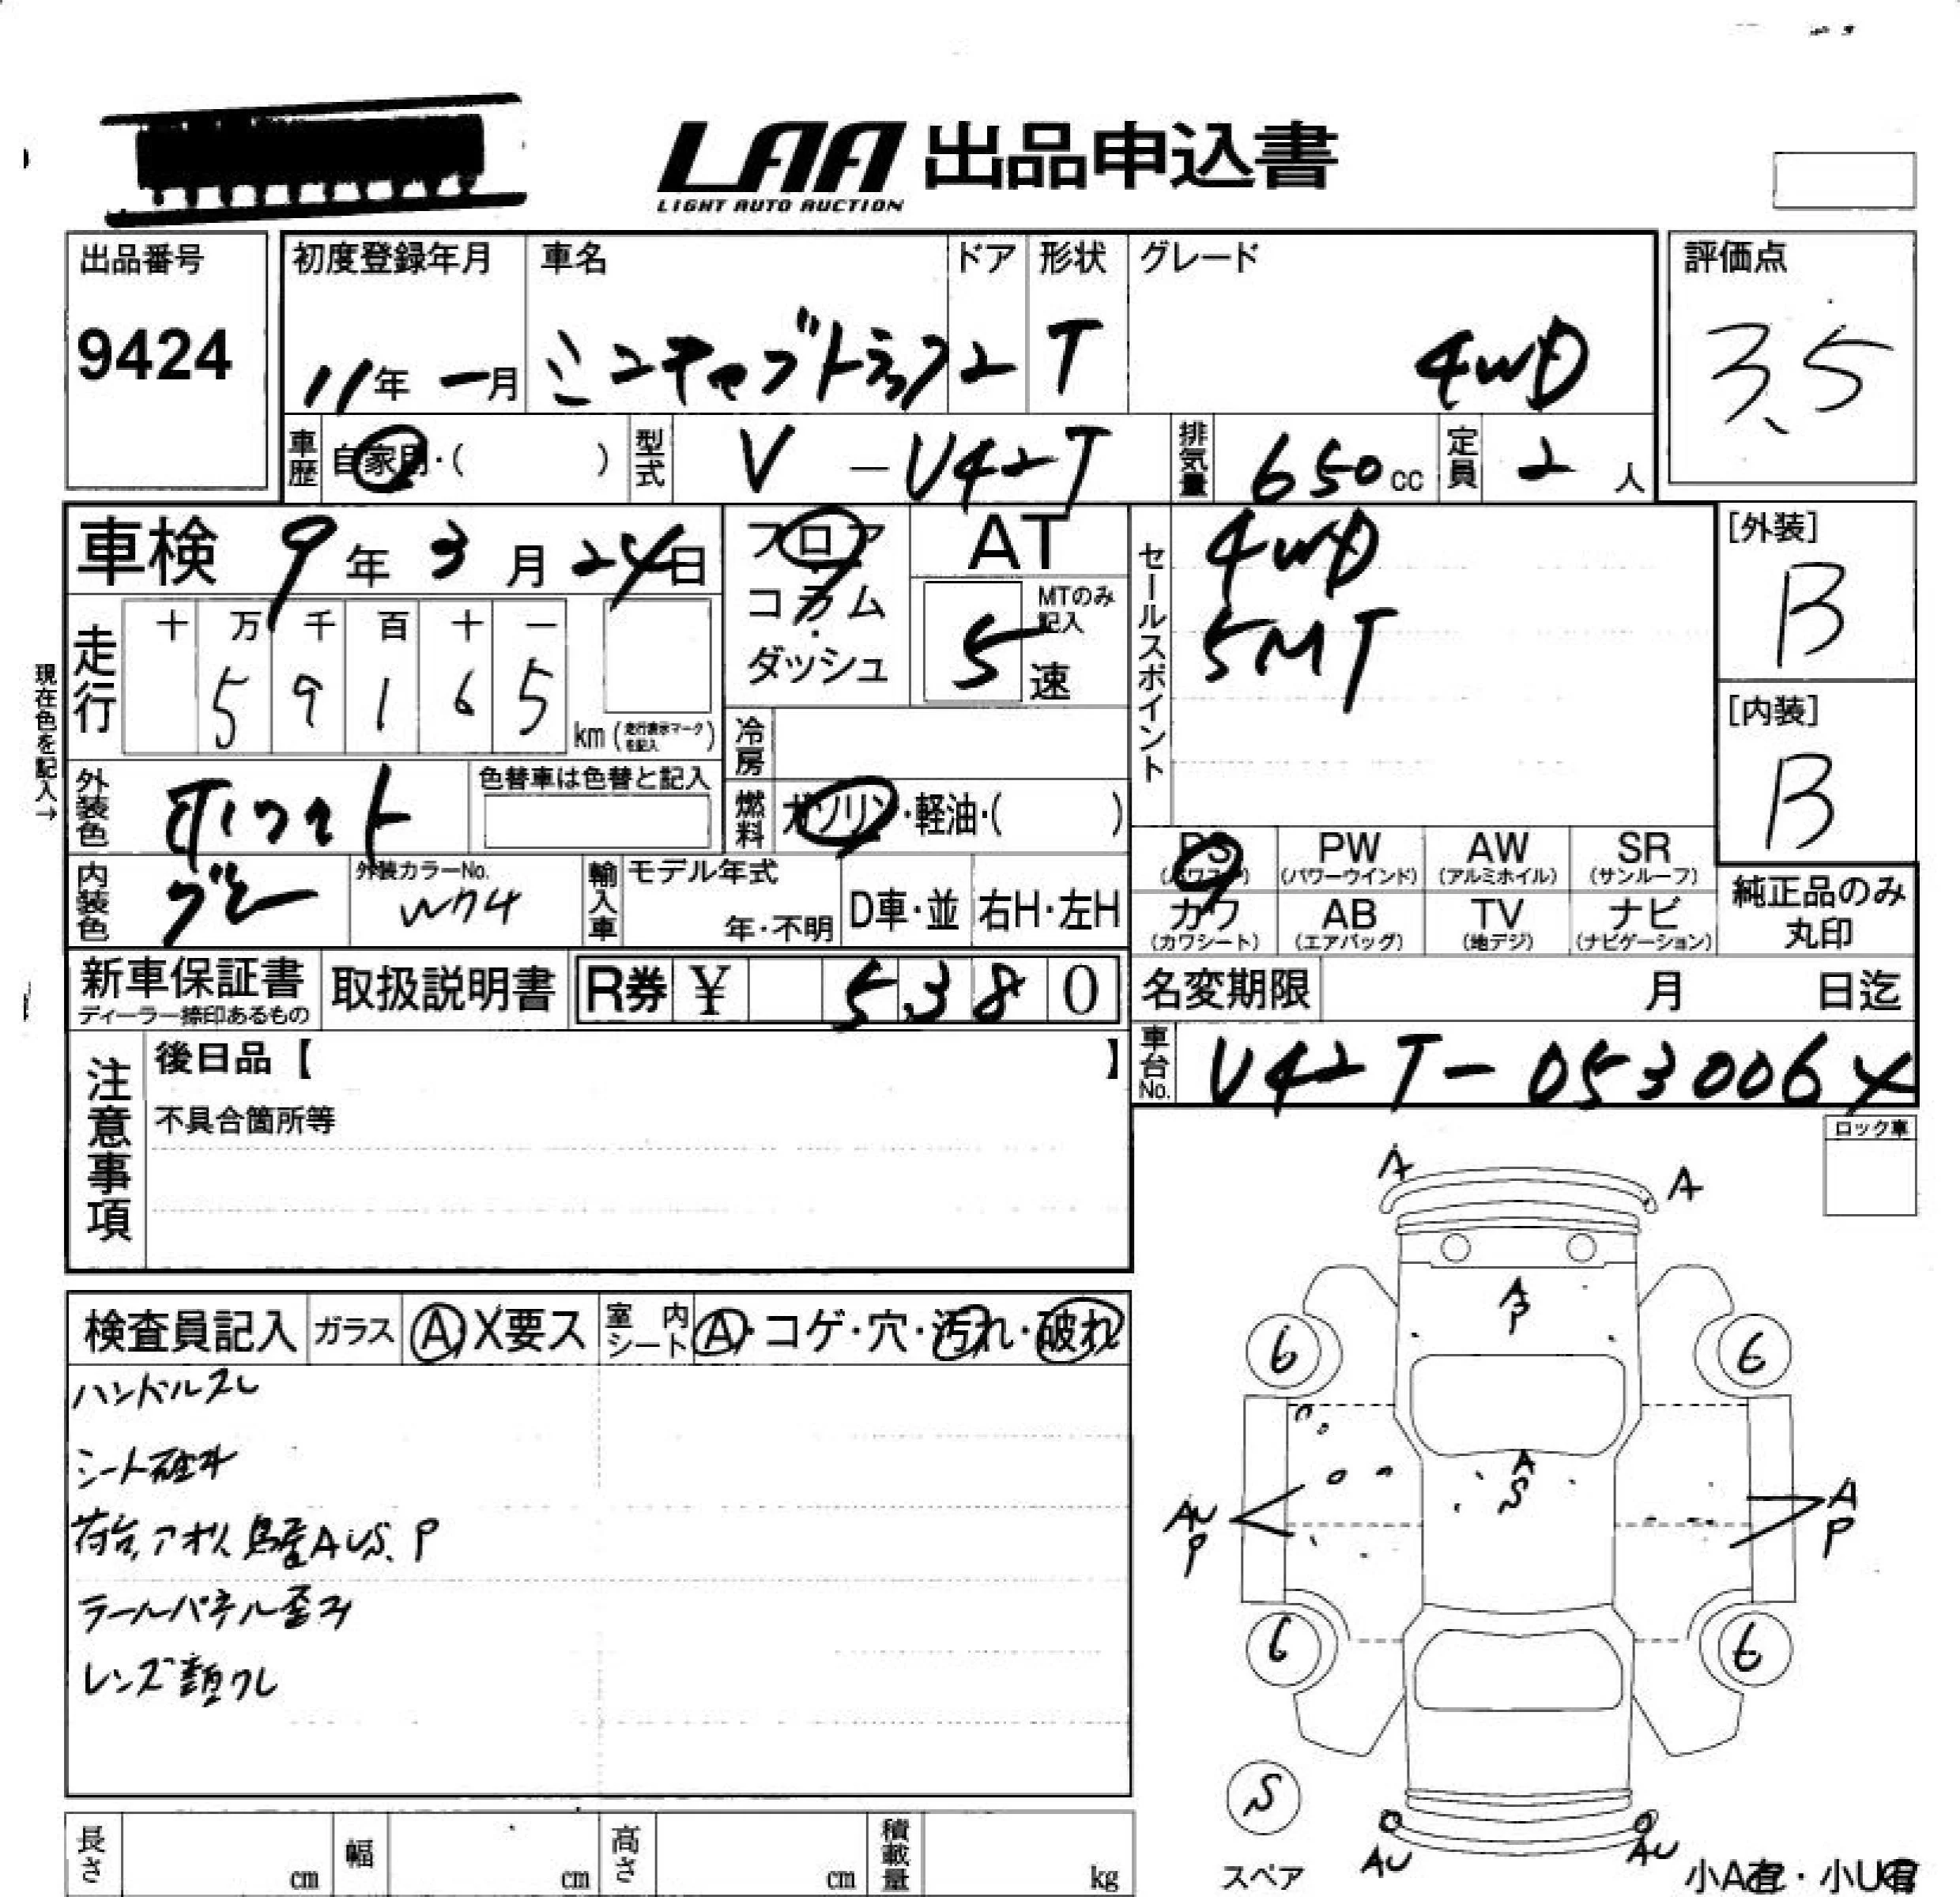 LAA 出品申込書
LIGHT AUTO AUCTION
出品番号
9424
初度登録年月
11年 一月
車名
ミニキャブトラック
ドア
2
形状
T
グレード
4WD
評価点
3.5
車歴
自家用・( )
型式
V-U42T
排気量
650cc
定員
2人
車検 9年3月24日
フロア
・
コラム
・
ダッシュ
AT
MTのみ記入
5速
セールスポイント
4WD
5MT
[外装]
B
[内装]
B
現在色を記入→
走行
十 万 千 百 十 一
5 9 1 6 5
km (走行表示マークを記入)
冷房
外装色
ホワイト
色替車は色替と記入
燃料
ガソリン・軽油・( )
内装色
グレー
外装カラーNo.
W74
輸入車
モデル年式
年・不明
D車・並
右H・左H
PS PW AW SR
(パワステ) (パワーウインド) (アルミホイル) (サンルーフ)
カワ AB TV ナビ
(カワシート) (エアバッグ) (地デジ) (ナビゲーション)
純正品のみ
丸印
新車保証書
ディーラー捺印あるもの
取扱説明書
R券 ¥ 5380
名変期限 月 日迄
車台No.
U42T-0530064
注意事項
後日品【 】
不具合箇所等
ロック車
検査員記入
ガラス
A X要ス
室内シート
A・コゲ・穴・汚れ・破れ
ハンドルスレ
荷台、アオリ、鳥居AUS、P
テールパネル歪み
レンズ類ワレ
A
A
A
P
6
6
A
S
AU
P
A
P
6
6
S
スペア
AU
AU
小A有・小U有
長さ cm
幅 cm
高さ cm
積載量 kg